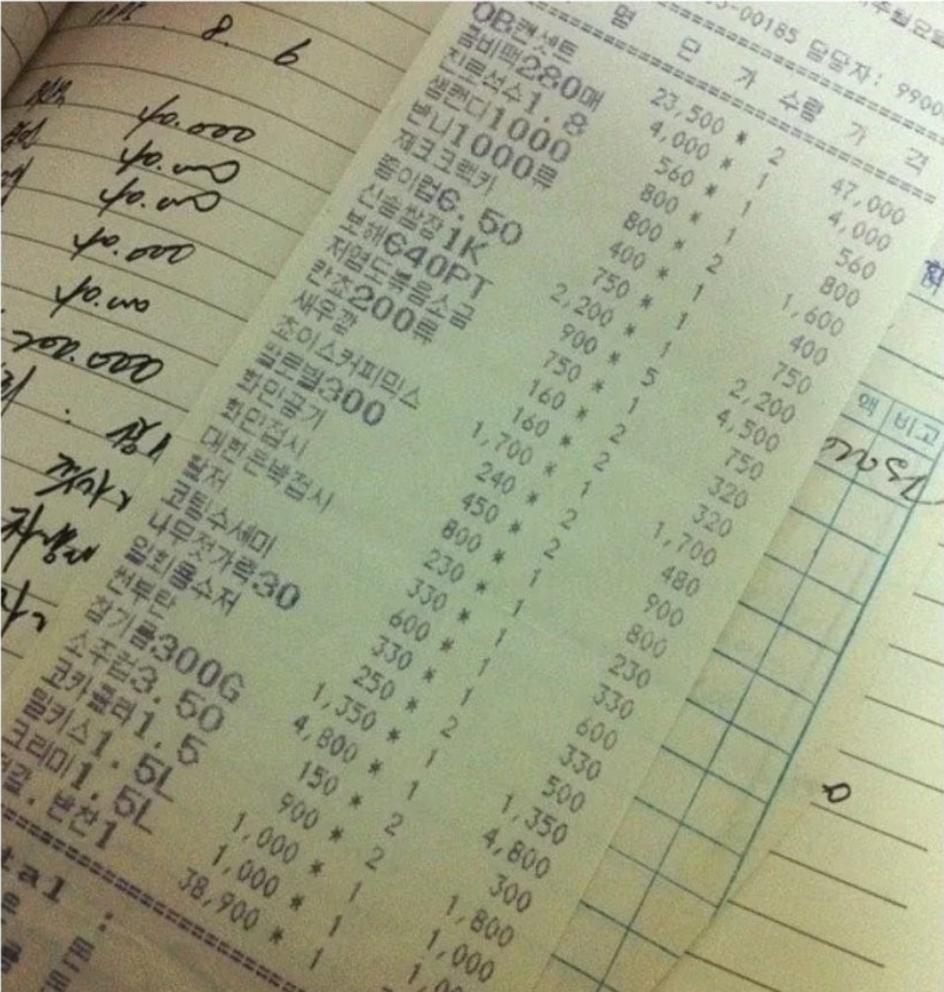 1995. 8. 6
40.000
40.000
40.000
40.000
40.000
200.000
-00185 담당자: 9900
명 단 가 수량 가 격
OB캔셋트 23,500 * 2 47,000
280매 4,000 * 1 4,000
진로석수1.8 560 * 1 560
샘캔디1000 800 * 1 800
1000류 800 * 2 1,600
제크크랙카 400 * 1 400
종이컵6.50 750 * 1 750
신송쌈장1K 2,200 * 1 2,200
보해640PT 900 * 5 4,500
저염도볶음소금 750 * 1 750
칸쵸200류 160 * 2 320
새우깡 160 * 2 320
초이스커피믹스 1,700 * 1 1,700
300 240 * 2 480
화인공기 450 * 2 900
화인접시 800 * 1 800
대현은박접시 230 * 1 230
330 * 1 330
수세미 600 * 1 600
나무젓가락30 330 * 1 330
일회용수저 250 * 2 500
썬투탄 1,350 * 1 1,350
참기름300G 4,800 * 1 4,800
소주컵3.50 150 * 2 300
코카콜라1.5 900 * 2 1,800
밀키스1.5L 1,000 * 1 1,000
크리미1.5L 1,000 * 1
젓갈,반찬1 38,900 * 1
tal :
액 비고